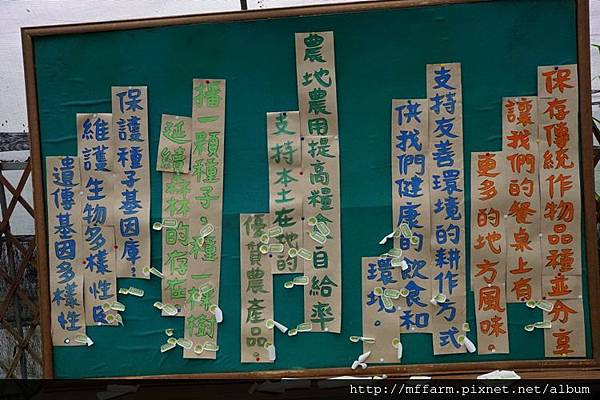 保存傳統作物品種並分享
讓我們的餐桌上有
更多的地方風味。
支持友善環境的耕作方式
供我們健康的飲食和
環境。
農地農用提高糧食自給率
支持本土在地的
優質農產品。
播一顆種子，種一株樹
延續森林的存在
保護種子基因庫：
維護生物多樣性
遺傳基因多樣性
http://mffarm.pixnet.net/album